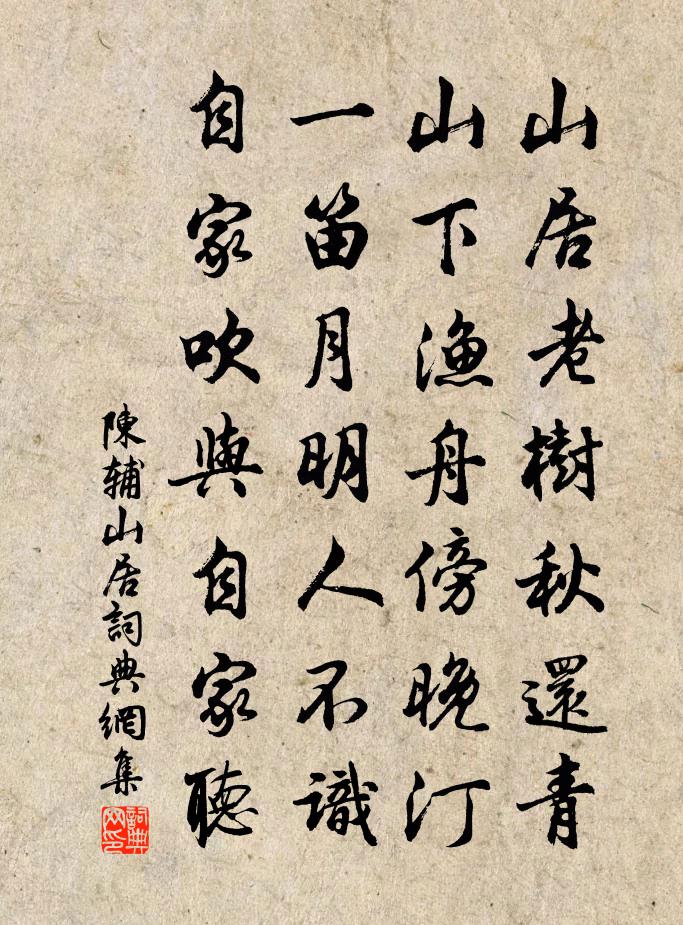 山居老樹秋還青
山下漁舟傍晚汀
一笛月明人不識
自家吹與自家聽
陳輔山居詞典網集
詞典网印